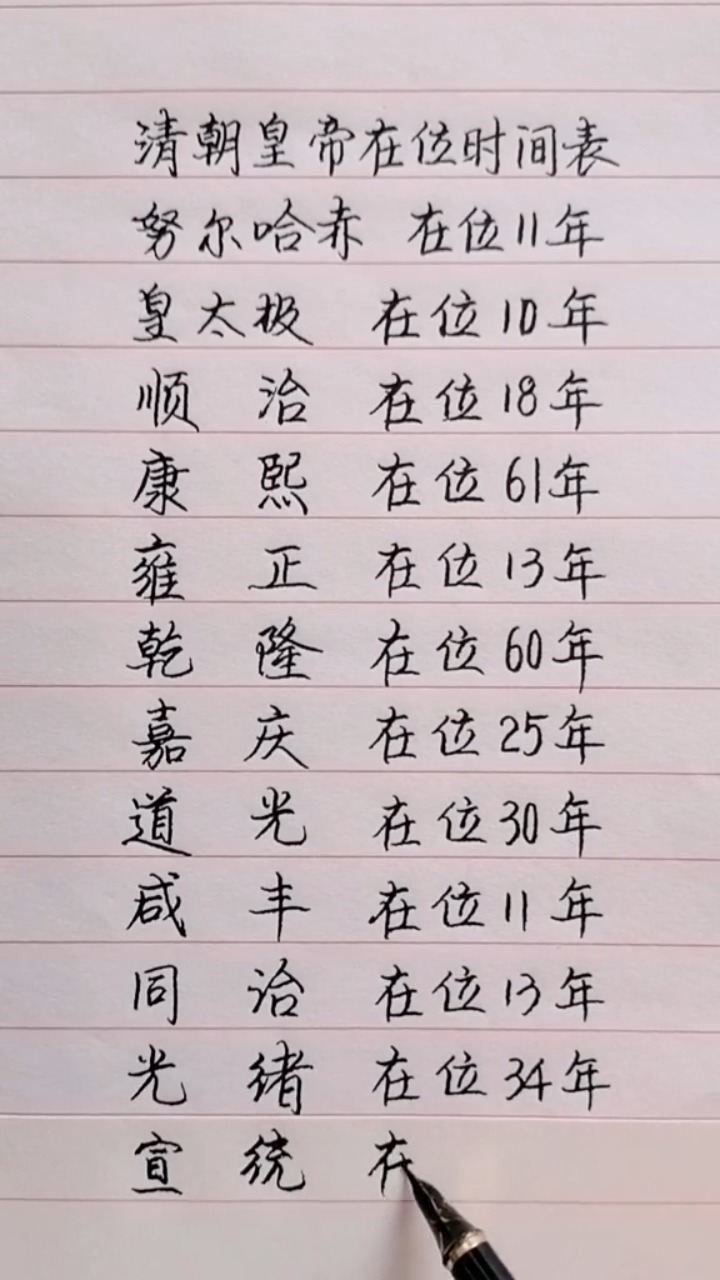 清朝皇帝在位时间表
努尔哈赤 在位11年
皇太极 在位10年
顺治 在位18年
康熙 在位61年
雍正 在位13年
乾隆 在位60年
嘉庆 在位25年
道光 在位30年
咸丰 在位11年
同治 在位13年
光绪 在位34年
宣统 在